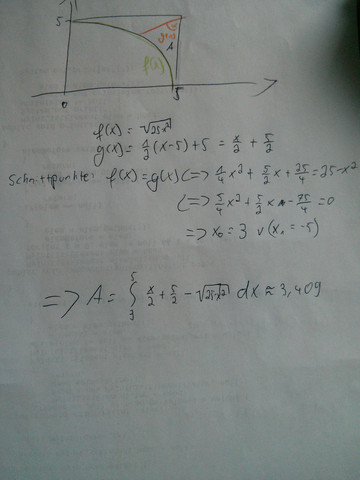 5
g(x)
A
f(x)
0
5
f(x) = √25-x²
g(x) = 1/2(x-5)+5 = x/2 + 5/2
Schnittpunkte: f(x)=g(x) <=> 1/4 x² + 5/2 x + 25/4 = 25-x²
<=> 5/4 x² + 5/2 x - 75/4 = 0
=> x₀ = 3 ∨ (x₁ = -5)
=> A = ∫₃⁵ x/2 + 5/2 - √25-x² dx ≈ 3,409